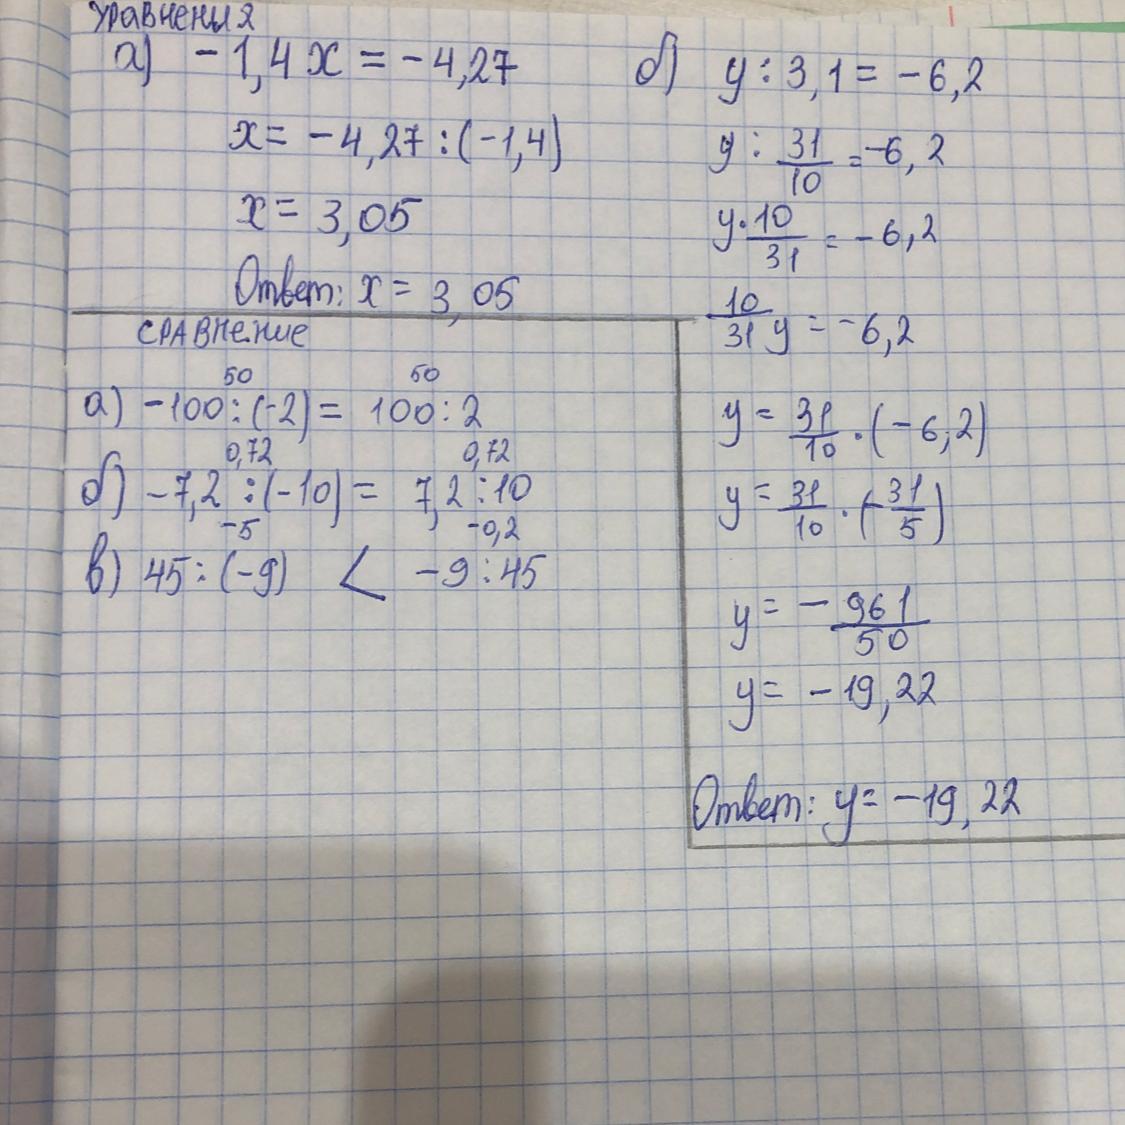 Уравнения
а) -1,4x = -4,27
x = -4,27 : (-1,4)
x = 3,05
Ответ: x = 3,05
б) y : 3,1 = -6,2
y : 31/10 = -6,2
y · 10/31 = -6,2
10/31 y = -6,2
y = 31/10 · (-6,2)
y = 31/10 · (-31/5)
y = - 961/50
y = -19,22
Ответ: y = -19,22
СРАВНЕНИЕ
50 50
а) -100 : (-2) = 100 : 2
0,72 0,72
б) -7,2 : (-10) = 7,2 : 10
-5 -0,2
в) 45 : (-9) < -9 : 45